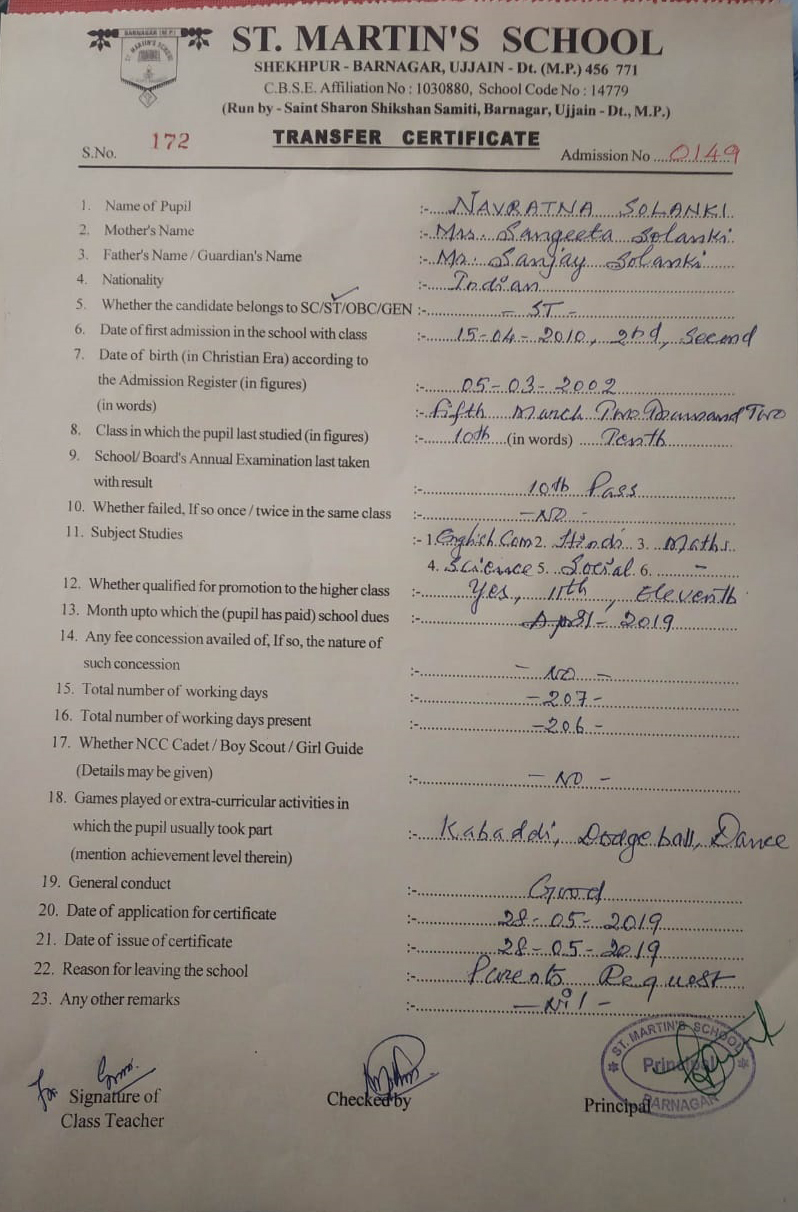 BARNAGAR (M.P.)
ST. MARTIN'S SCHOOL
ST. MARTIN'S SCHOOL
SHEKHPUR - BARNAGAR, UJJAIN - Dt. (M.P.) 456 771
C.B.S.E. Affiliation No : 1030880, School Code No : 14779
(Run by - Saint Sharon Shikshan Samiti, Barnagar, Ujjain - Dt., M.P.)
TRANSFER CERTIFICATE
S.No. 172 Admission No ....0149
1. Name of Pupil :-....NAVRATNA SOLANKI
2. Mother's Name :-Mrs. Sangeeta Solanki.
3. Father's Name / Guardian's Name :-Mr. Sanjay Solanki
4. Nationality :-Indian
5. Whether the candidate belongs to SC/ST/OBC/GEN :- - ST -
6. Date of first admission in the school with class :-15-04-2010, 2nd, Second
7. Date of birth (in Christian Era) according to
the Admission Register (in figures) :-05-03-2002
(in words) :-fifth March Two Thousand Two
8. Class in which the pupil last studied (in figures) :-10th (in words) Tenth
9. School/ Board's Annual Examination last taken
with result :-10th Pass
10. Whether failed, If so once / twice in the same class :- -NO-
11. Subject Studies :- 1 English Com 2. Hindi 3. Maths.
4. Science 5. Social 6. -
12. Whether qualified for promotion to the higher class :-Yes, 11th, Eleventh
13. Month upto which the (pupil has paid) school dues :-April-2019
14. Any fee concession availed of, If so, the nature of
such concession :- - NO -
15. Total number of working days :- -207-
16. Total number of working days present :- -206-
17. Whether NCC Cadet / Boy Scout / Girl Guide
(Details may be given) :- - NO -
18. Games played or extra-curricular activities in
which the pupil usually took part :-Kabaddi, Dodge ball, Dance
(mention achievement level therein)
19. General conduct :-Good
20. Date of application for certificate :-28-05-2019
21. Date of issue of certificate :-28-05-2019
22. Reason for leaving the school :-Parents Request
23. Any other remarks :- -Nil-
ST. MARTIN'S SCHOOL
Principal
BARNAGAR
For
Signature of Checked by Principal
Class Teacher